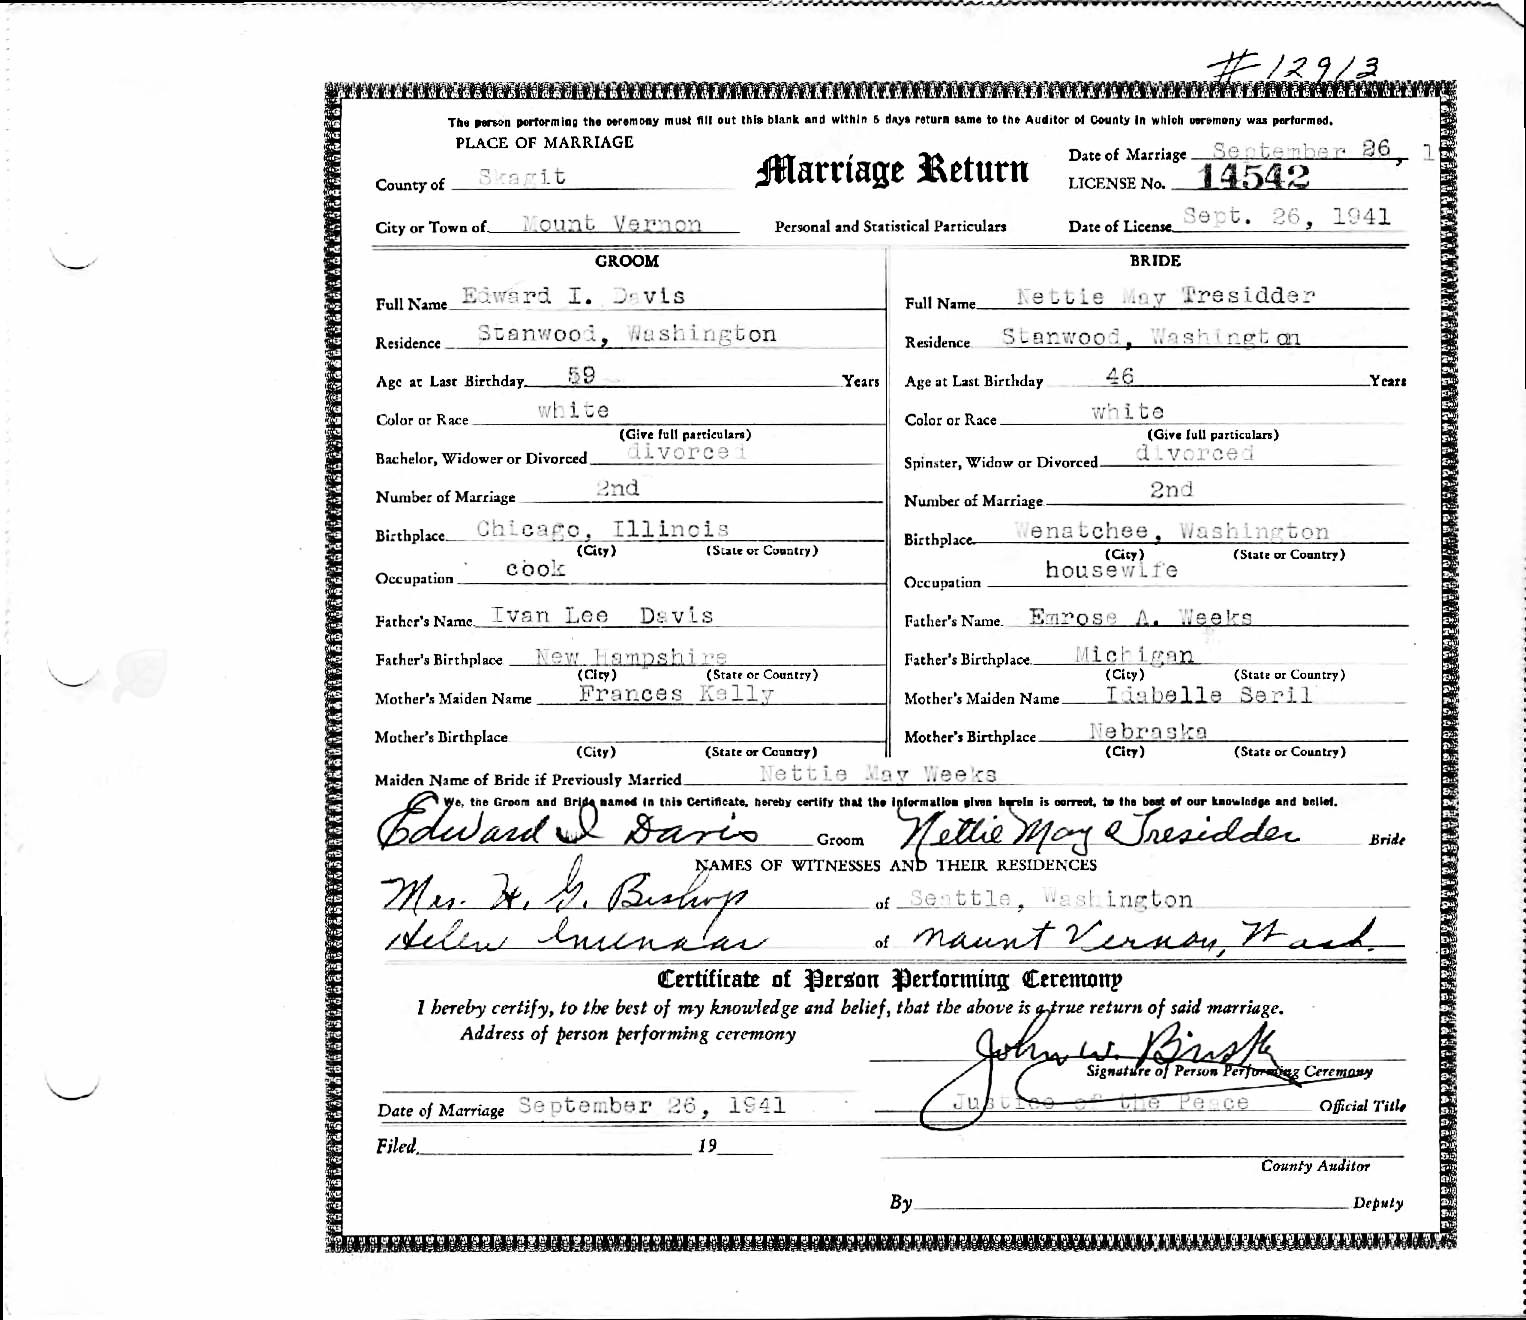 # 12913
The person performing the ceremony must fill out this blank and within 5 days return same to the Auditor of County in which ceremony was performed.
PLACE OF MARRIAGE
Marriage Return
Date of Marriage September 26, 1
County of Skagit
LICENSE No. 14542
City or Town of Mount Vernon
Personal and Statistical Particulars
Date of License Sept. 26, 1941
GROOM
BRIDE
Full Name Edward I. Davis
Full Name Nettie May Tresidder
Residence Stanwood, Washington
Residence Stanwood, Washington
Age at Last Birthday 59 Years
Age at Last Birthday 46 Years
Color or Race white
Color or Race white
(Give full particulars)
(Give full particulars)
Bachelor, Widower or Divorced divorced
Spinster, Widow or Divorced divorced
Number of Marriage 2nd
Number of Marriage 2nd
Birthplace Chicago, Illinois
Birthplace Wenatchee, Washington
(City) (State or Country)
(City) (State or Country)
Occupation cook
Occupation housewife
Father's Name Ivan Lee Davis
Father's Name Emrose A. Weeks
Father's Birthplace New Hampshire
Father's Birthplace Michigan
(City) (State or Country)
(City) (State or Country)
Mother's Maiden Name Frances Kelly
Mother's Maiden Name Idabelle Seril
Mother's Birthplace
Mother's Birthplace Nebraska
(City) (State or Country)
(City) (State or Country)
Maiden Name of Bride if Previously Married Nettie May Weeks
We, the Groom and Bride named in this Certificate, hereby certify that the information given herein is correct, to the best of our knowledge and belief.
Edward I Davis Groom Nettie May Tresidder Bride
NAMES OF WITNESSES AND THEIR RESIDENCES
Mrs. H. G. Bishop of Seattle, Washington
Helen of Mount Vernon, Wash.
Certificate of Person Performing Ceremony
I hereby certify, to the best of my knowledge and belief, that the above is a true return of said marriage.
Address of person performing ceremony
John W. Brisky
Signature of Person Performing Ceremony
Date of Marriage September 26, 1941
Justice of the Peace Official Title
Filed 19
County Auditor
By Deputy